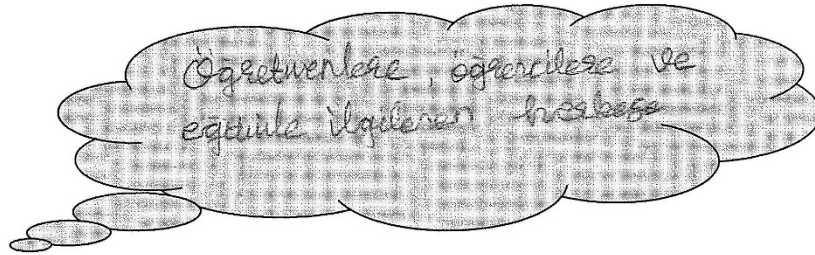 Öğretmenlere, öğrencilere ve
eğitimle ilgilenen herkese